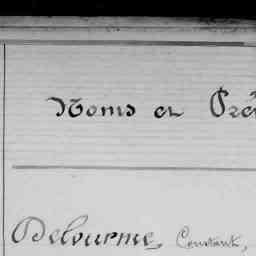 Noms et Pré
Delourme, Constant,